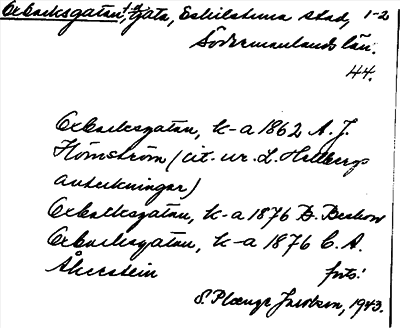 Oxbacksgatan, gata, Eskilstuna stad, 1-2
Södermanlands län.
44.
Oxbacksgatan, k-a 1862 A. J.
Hörnström (cit. ur. L. Hellbergs
anteckningar)
Oxbacksgatan, k-a 1876 D. Beskow
Oxbacksgatan, k-a 1876 C. A.
Åkerstein forts!
S. Plænge Jacobson, 1943.